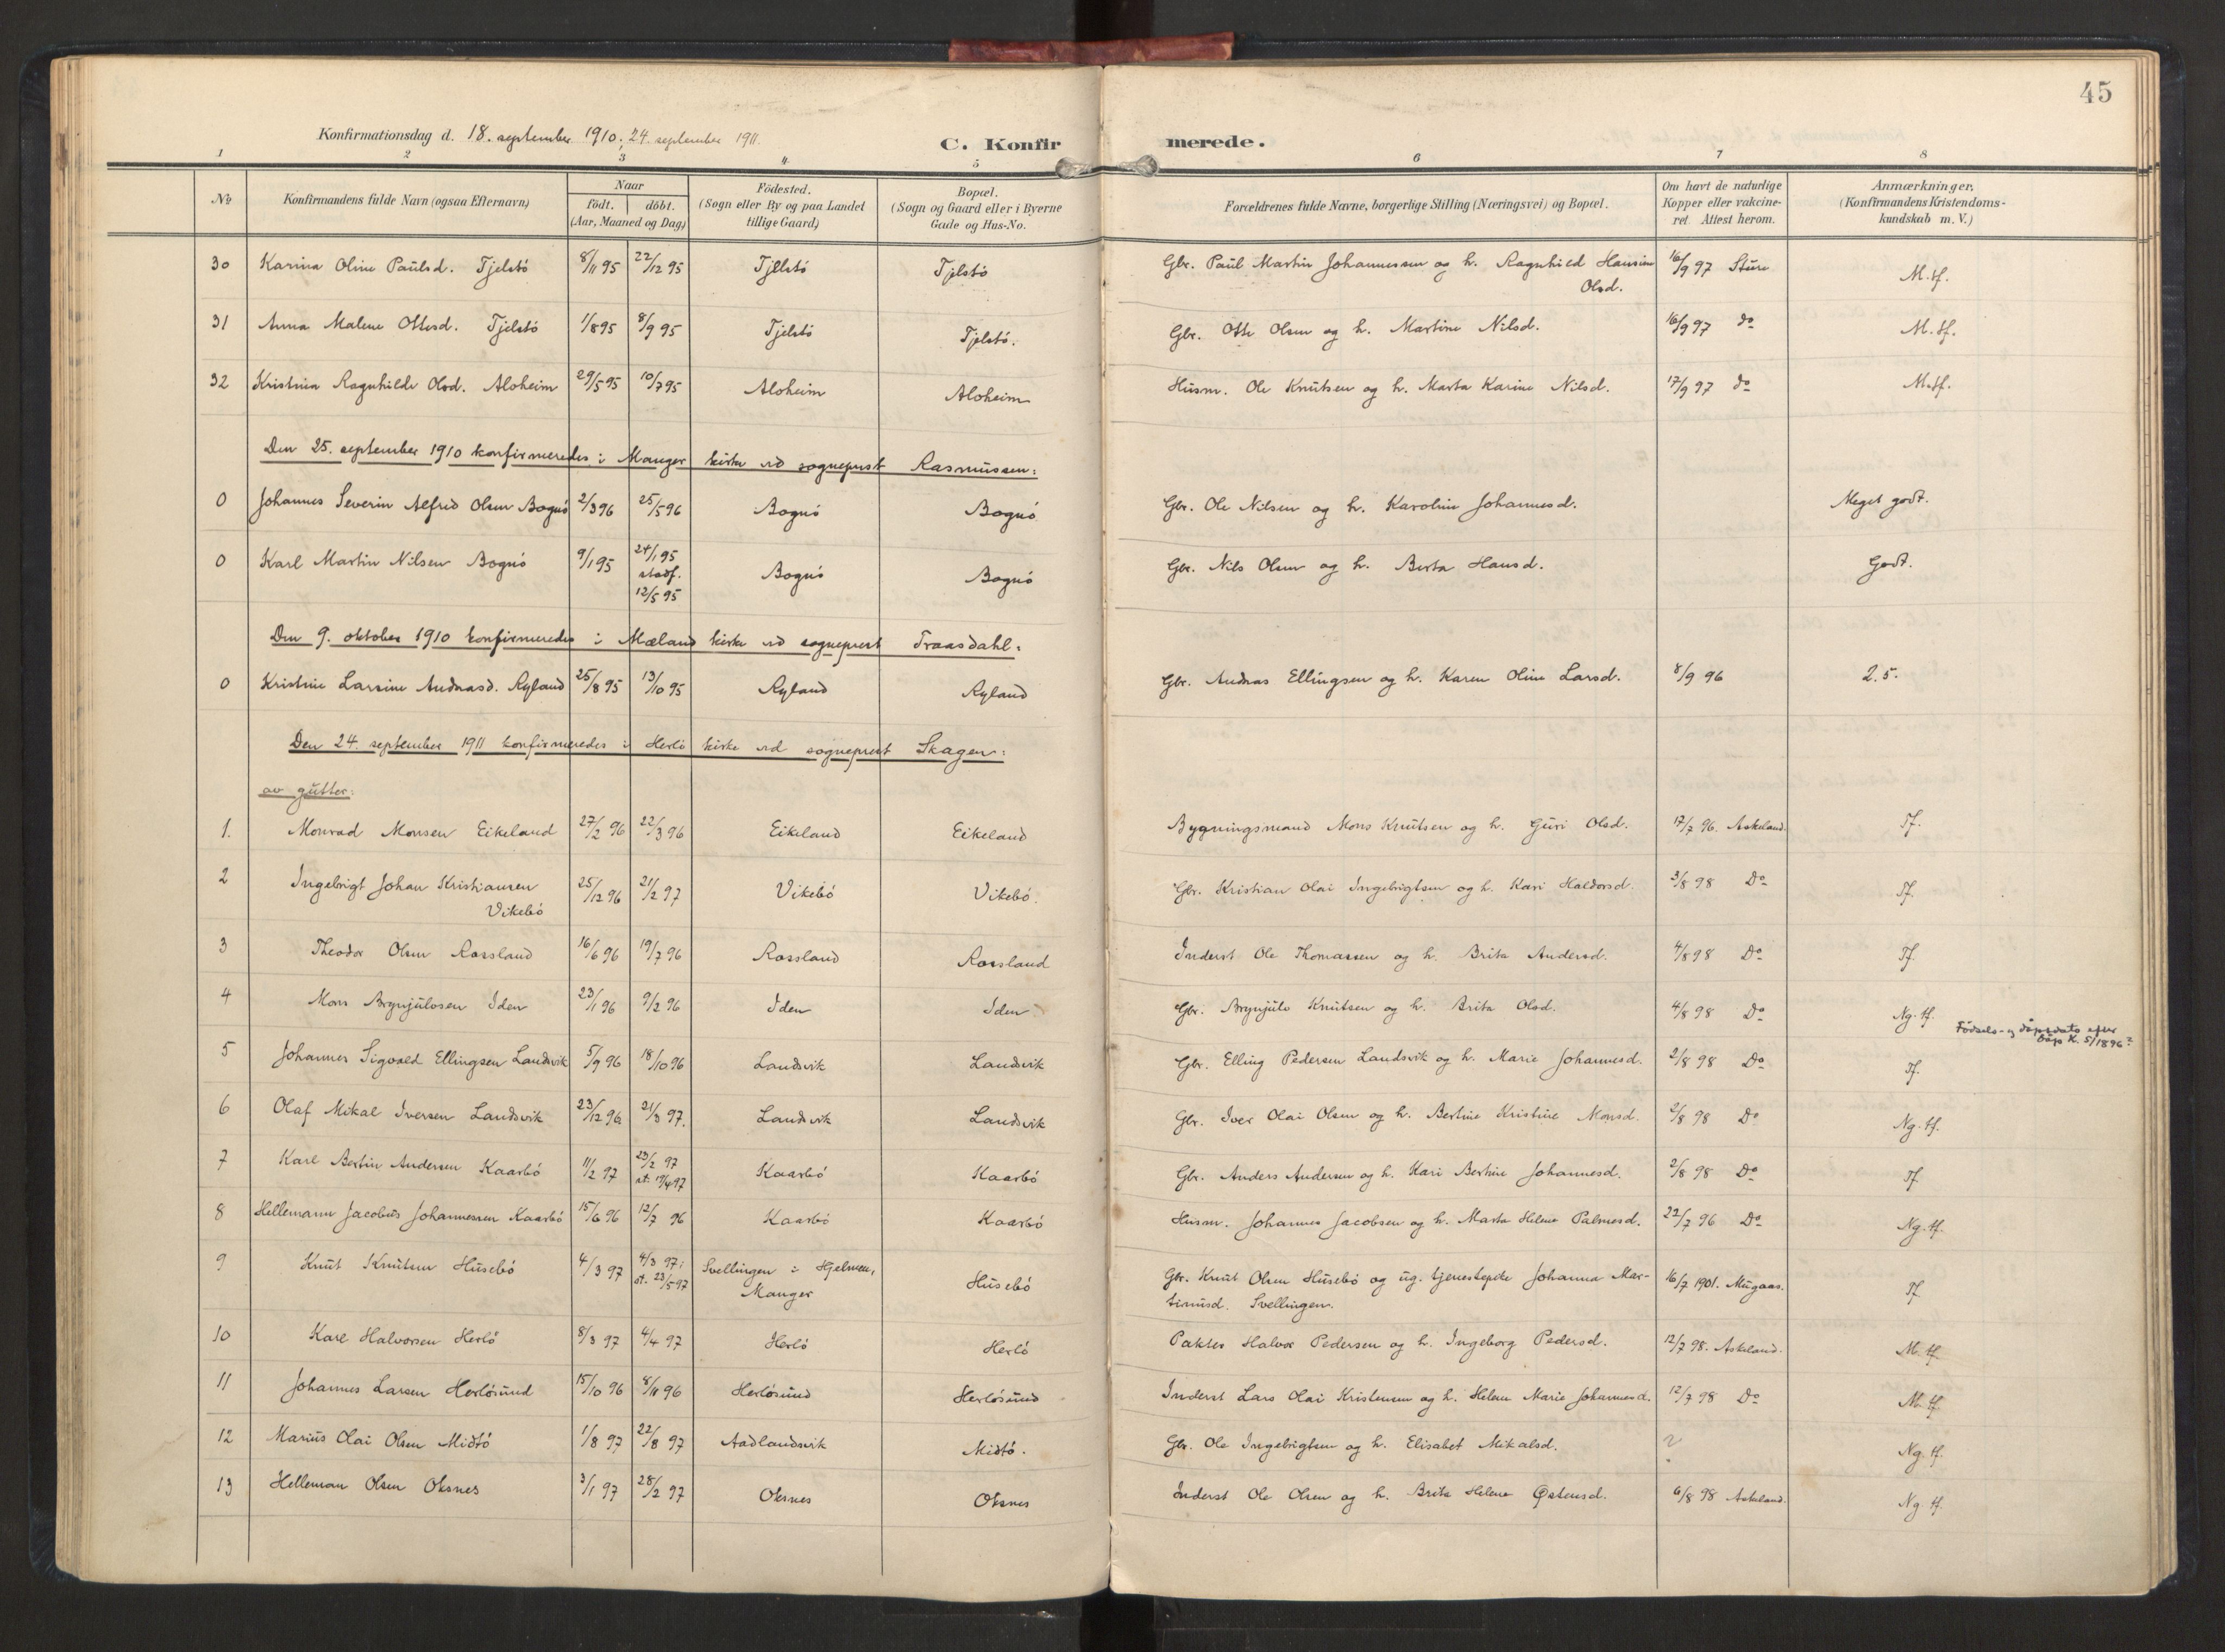 45
Konfirmationsdag d. 18. september 1910; 24. september 1911.
C. Konfirmerede.
1 2 3 4 5 6 7 8
No
Konfirmandens fulde Navn (ogsaa Efternavn)
Naar
födt. döbt.
(Aar, Maaned og Dag)
Födested.
(Sogn eller By og paa Landet
tillige Gaard)
Bopæl.
(Sogn og Gaard eller i Byerne
Gade og Hus-No.
Forældrenes fulde Navne, borgerlige Stilling (Næringsvei) og Bopæl.
Om havt de naturlige
Kopper eller vakcine-
ret. Attest herom.
Anmærkninger.
(Konfirmandens Kristendoms-
kundskab m. V.)
30 Karina Oline Paulsd. Tjelstö 8/11 95 22/12 95 Tjelstö Tjelstö Gbr. Paul Martin Johannessen og h. Ragnhild Hansine 16/9 97 Sture M. tf.
Olsd.
31 Anna Malene Ottesd. Tjelstö 1/8 95 8/9 95 Tjelstö Tjelstö. Gbr. Otte Olsen og h. Martine Nilsd. 16/9 97 do M. tf.
32 Kristina Ragnhilde Olsd. Aloheim 29/5 95 10/7 95 Aloheim Aloheim Husm. Ole Knutsen og h. Marta Karine Nilsd. 17/9 97 do M. tf.
Den 25. september 1910 konfirmeredes i Manger kirke ved sogneprest Rasmussen:
0 Johannes Severin Alfred Olsen Bognö 2/3 96 25/5 96 Bognö Bognö Gbr. Ole Nilsen og h. Karoline Johannesd. Meget godt.
0 Karl Martin Nilsen Bognö 9/1 95 24/1 95 Bognö Bognö Gbr. Nils Olsen og h. Berta Hansd. Godt.
stadf.
12/5 95
Den 9. oktober 1910 konfirmeredes i Mæland kirke ved sogneprest Traasdahl:
0 Kristine Larsine Andreasd. Ryland 25/8 95 13/10 95 Ryland Ryland Gbr. Andreas Ellingsen og h. Karen Oline Larsd. 8/9 96 2.5.
Den 24. september 1911 konfirmeredes i Herlö kirke ved sogneprest Skagen:
av gutter:
1. Monrad Monsen Eikeland 27/2 96 22/3 96 Eikeland Eikeland Bygningsmand Mons Knutsen og h. Guri Olsd. 17/7 96. Askeland. Tf.
2 Ingebrigt Johan Kristiansen 25/12 96 21/2 97 Vikebö Vikebö. Gbr. Kristian Olai Ingebrigtsen og h. Kari Haldorsd. 3/8 98 Do Tf.
Vikebö
3 Theodor Olsen Rossland 16/6 96 19/7 96 Rossland Rossland Inderst Ole Thomassen og h. Brita Andersd. 4/8 98 Do Tf.
4 Mons Brynjulvsen Iden 23/1 96 9/2 96 Iden Iden Gbr. Brynjulv Knutsen og h. Brita Olsd. 4/8 98 Do Ng. tf.
Födsels- og dåpsdato efter
dåp K. 5/1896?
5 Johannes Sigvald Ellingsen Landsvik 5/9 96 18/10 96 Landsvik Landsvik Gbr. Elling Pedersen Landsvik og h. Marie Johannesd. 2/8 98 Do Tf.
6 Olaf Mikal Iversen Landsvik 23/12 96 21/3 97. Landsvik Landsvik Gbr. Iver Olai Olsen og h. Bertine Kristine Monsd. 2/8 98 Do Ng. tf.
7 Karl Bertin Andersen Kaarbö 11/2 97 23/2 97 Kaarbö Kaarbö Gbr. Anders Andersen og h. Kari Bertine Johannesd. 2/8 98 Do Tf.
st. 19/4 97
8 Hellemann Jacobus Johannessen Kaarbö 15/6 96 12/7 96 Kaarbö Kaarbö Husm. Johannes Jacobsen og h. Marta Helene Palmesd. 22/7 96 Do Ng. tf.
9 Knut Knutsen Husebö 4/3 97 4/3 97; Svellingen i Hjelmen, Husebö Gbr. Knut Olsen Husebö og ug. tjenestepike Johanna Mar- 16/7 1901. Mugaas. Tf
st. 23/5 97 Manger tinusd. Svellingen.
10 Karl Halvorsen Herlö 8/3 97 4/4 97 Herlö Herlö Pakter Halvor Pedersen og h. Ingeborg Pedersd. 12/7 98. Askeland. M. tf.
11 Johannes Larsen Herlösund 15/10 96 8/11 96 Herlösund Herlösund Inderst Lars Olai Kristensen og h. Helene Marie Johannesd. 12/7 98 Do M. tf
12 Marius Olai Olsen Midtö 1/8 97 22/8 97 Aadlandsvik Midtö. Gbr. Ole Ingebrigtsen og h. Elisabet Mikalsd. ? Ng. tf.
13 Helleman Olsen Oksnes 3/1 97 28/2 97 Oksnes Oksnes Inderst Ole Olsen og h. Brita Helene Østensd. 6/8 98 Askeland. Ng. tf.